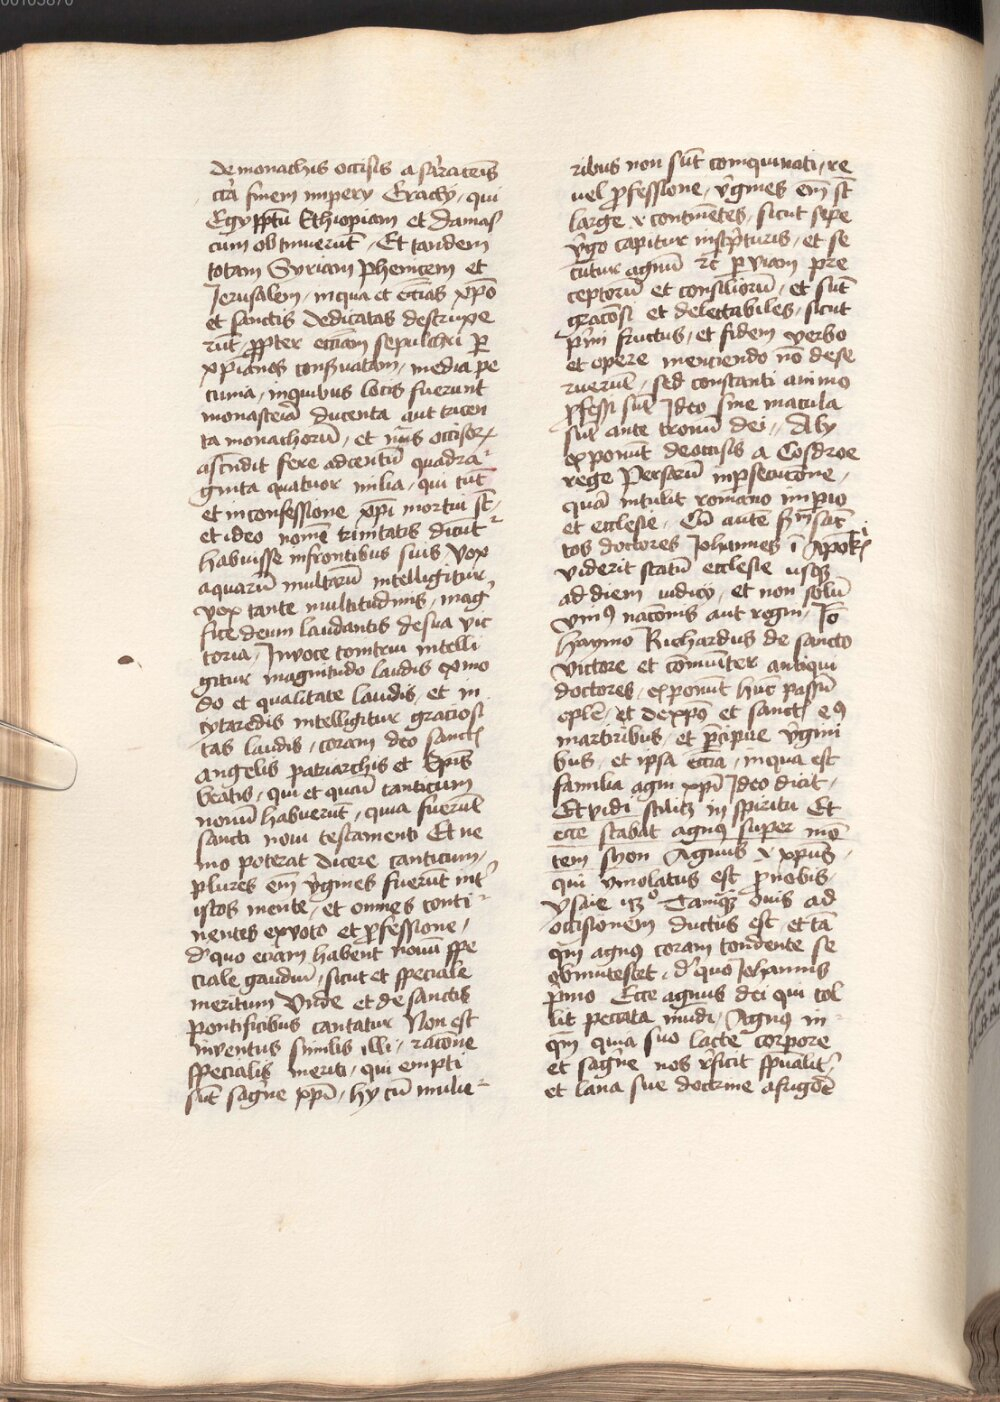 00103870
de monachis occisis a saracenis
circa finem impery Eracly, qui
Egypptū Ethiopiam et Damas
cum obtinuerūt, Et tandem
totam Syriam Phenicem et
Jerusalem, in qua et eccīas xpō
et sanctis dedicatas destruxe
rūt, ꝓpter eccīam sepulchri ꝑ
xpīanos conservatam, media pe
cunia, in quibus locis fuerunt
monasteria ducenta aut tricen
ta monachorū, et occisorꝝ
ascendit fere ad centū quadra-
ginta quatuor milia, qui tūc
et in confessione xpī mortui st̄-
et ideo nomē trinitatis dicūt-
habuisse in frontibus suis Vox
aquarū multarū intelligitur
vox tante multitudinis, mag
fice deum laudantis de sua vic
toria, In voce tonitrui intelli
gitur magnitudo laudis ex mo
do et qualitate laudis, et in
cytaredis intelligitur graciosi
tas laudis, coram deo sanctꝭ
angelis patriarchis et
beatis, qui et quasi canticum
nouū habuerūt, quia fuerūt
sancti noui testamenti Et ne
mo poterat dicere canticum,
plures em̄ v̄gines fuerūt int̄
istos mente, et omnes conti-
nentes ex voto et ꝓfessione,
d̄ quo eciam habent nouū spe
ciale gaudiū, sicut et speciale
meritum Vnde et de sanctis
pontificibus cantatur Non est
inventus similis illi, racōne
specialis meriti, qui empti
sūt sāgīe xpī, hy cū mulie-
ribus non sūt coinquinati, re
uel ꝓfessione, v̄gines em̄ st̄
large continētes, sicut sepe
v̄go capitur in scpturis, et se
cutur agnū ꝛc ꝑ viam pre
ceptorū et consiliorū, et sūt
graciosi et delectabiles, sicut
pīmi fructus, et fidem verbo
et opere menciendo nō dese
ruerūt, sed constanti animo
ꝓfessi sūt Ideo sine macula
sūt ante tronū dei, Aly
exponūt de occisis a Cosdroe
rege Persarū in ꝑsecucōne,
quā intulit romano impio
et ecclesie, Cū autē sc̄dm sāc
tos doctores Johannes ī Apok̄
viderit statū ecclesie usqꝫ
ad diem iudicy, et non solū
vniꝰ nacōnis aut regni, Iō
haymo Richardus de sancto
victore et cōmunit̄er antiqui
doctores, exponūt hūc passū
de xpō et sanctꝭ eꝰ
martiribus, et p̄cipue v̄gini
bus, et ipsa eccīa, in qua est
familia agni xpī Ideo dicit,
Et vidi scilicꝫ in spiritu Et
ecce stabat agnꝰ super mō
tem syon Agnus xpūs,
qui ymolatus est pro nobis,
ysaie Tamqꝫ ouis ad
occisionem ductus est, et tā
qm̄ agnꝰ coram tondente se
obmutescet, d̄ quo Johannis
p̄mo Ecce agnus dei qui tol
lit peccata mūdi, Agnꝰ in-
qm̄ quia suo lacte corpore
et sāgīe nos r̄ficit spūalit̄,
et lana sue doctrine a frigōe